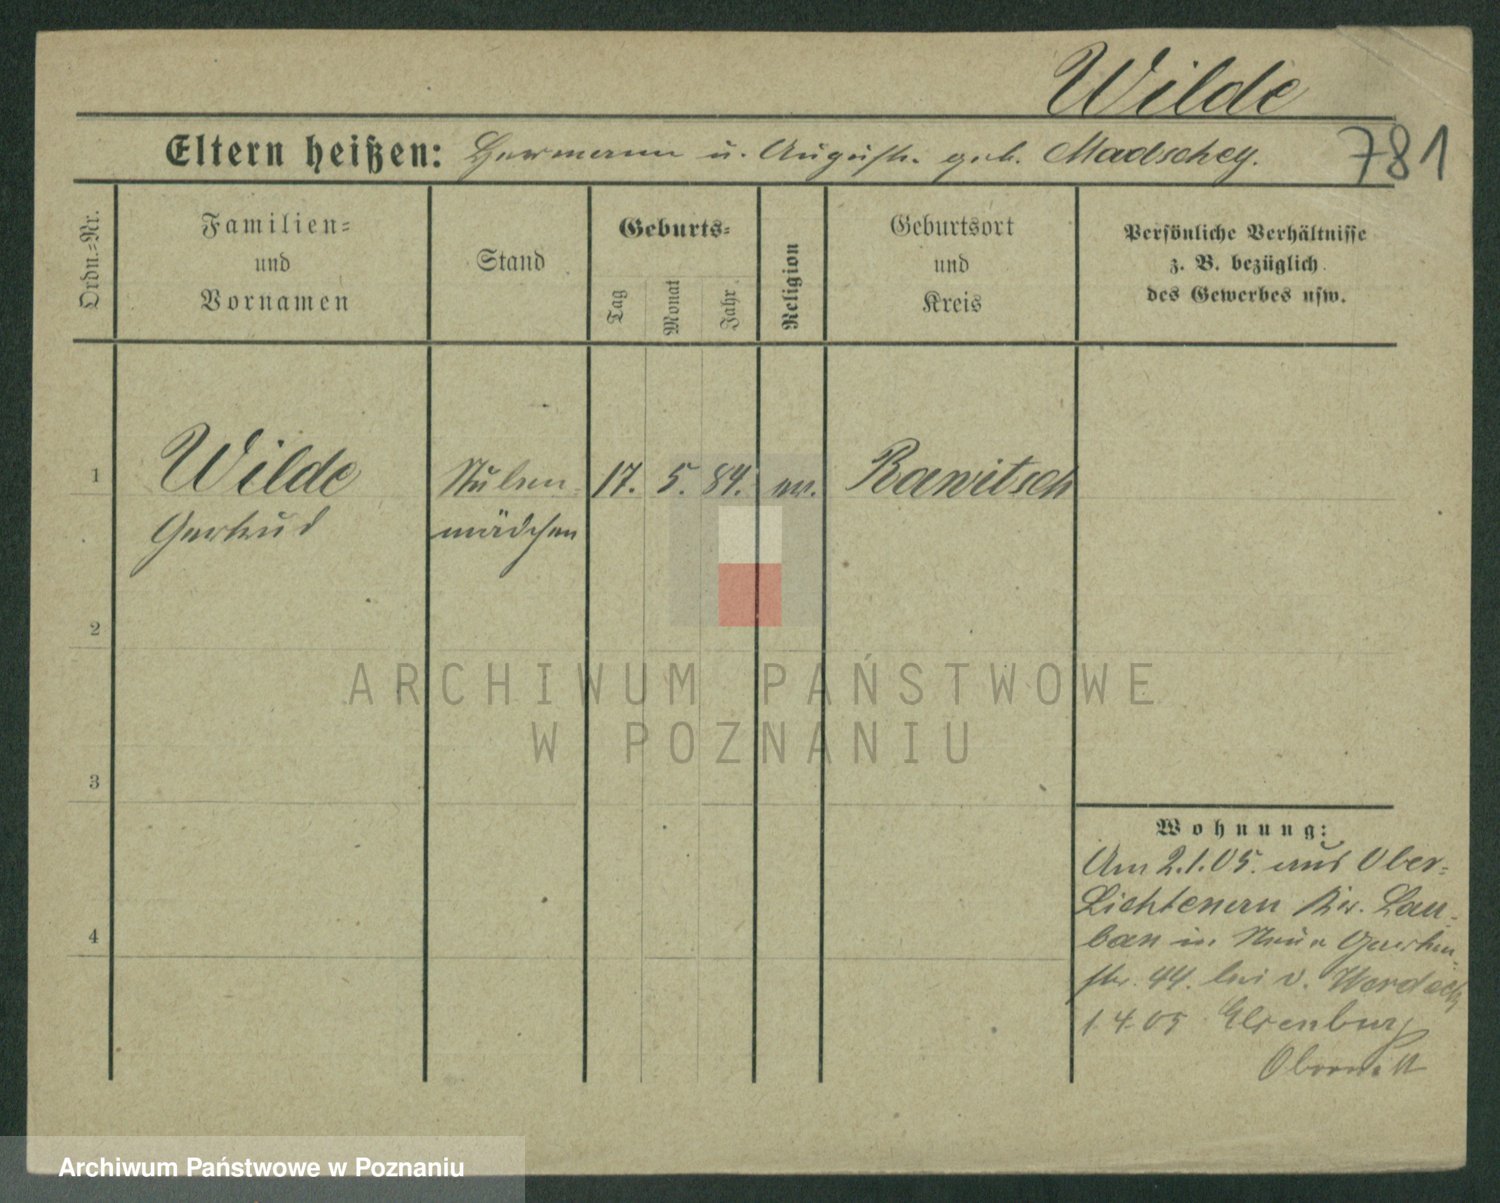 Wilde
Eltern heißen: Hermann u. Auguste geb. Madschey.
781
Ordn.-Nr.
Familien-
und
Vornamen
Stand
Geburts-
Tag
Monat
Jahr
Religion
Geburtsort
und
Kreis
Persönliche Verhältnisse
z. B. bezüglich
des Gewerbes usw.
1
Wilde
Gertrud
Stuben-
mädchen
17. 5. 84. ev.
Rawitsch
2
3
4
Wohnung:
Am 2.1.05. aus Ober-
Lichtenau Kr. Lau-
ban in Neue Garten-
str. 44. bei v.
1.4.05
Obornik
ARCHIWUM PAŃSTWOWE
W POZNANIU
Archiwum Państwowe w Poznaniu